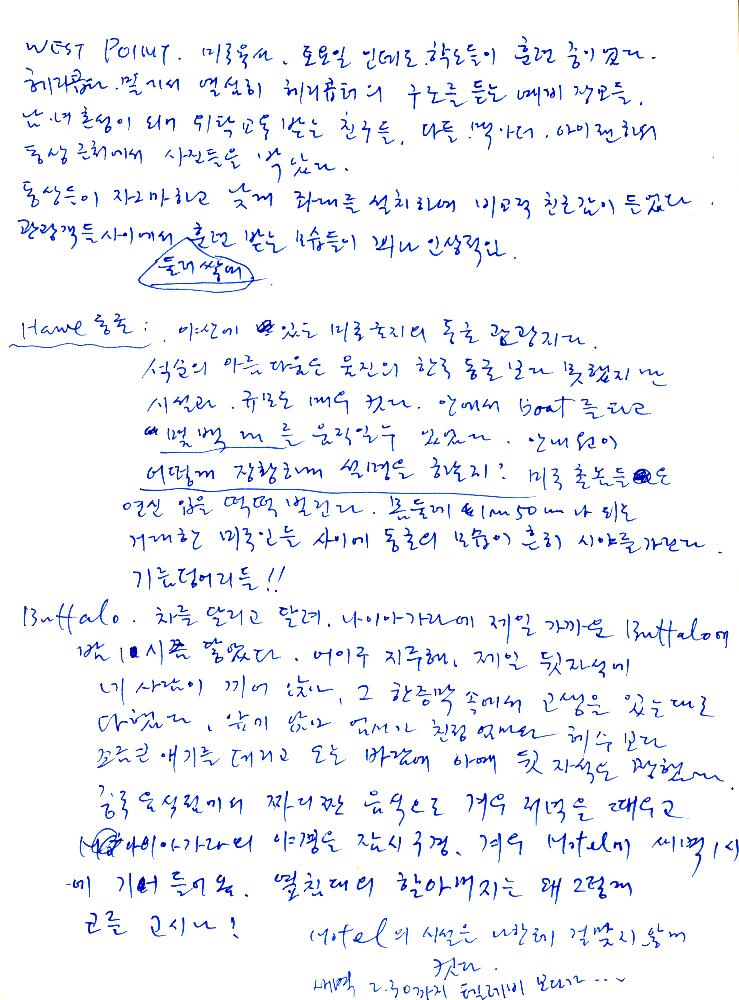 WEST POINT. 미국육사. 토요일 인데도 학도들이 훈련 중이었다.
헤리콥타. 밑에서 열심히 헤리콥터의 구조를 듣는 예비 장교들,
남.녀 혼성이 되어 위탁교육 받는 친구들, 다들 맥아더. 아이젠하워
동상 근처에서 사진들을 박았다.
동상들이 자그마하고 낮게 좌대를 설치하여 비교적 친근감이 들었다.
관광객들사이에서 훈련 받는 모습들이 꽤나 인상적인.
둘러쌓여
Hawe 동굴 : 야산에 있는 미국 굴지의 동굴 관광지다.
석순의 아름다움은 울진의 한국 동굴 보다 못했지만
시설과. 규모는 매우 컷다. 안에서 boat를 타고
몇백 m를 움직일수 있었다. 안내원이
어떻게 장황하게 설명을 하는지? 미국 촌놈들은
연신 입을 떡떡 벌린다. 몸둘레 1m 50cm나 되는
거대한 미국인들 사이에 동굴의 모습이 흔히 시야를 가린다.
기름덩어리들!!
Buffalo. 차를 달리고 달려. 나이아가라에 제일 가까운 Buffalo에
밤 10시쯤 닿았다. 어이구 지루해. 제일 뒷자석에
네 사람이 끼어 앉아, 그 한증막 속에서 고생을 있는대로
다했다. 앞에 앉아 혜수 보다
조금큰 얘기를 데리고 오는 바람에 아예 뒷 자석을 택했다.
중국음식점에서 짜디짠 음식으로 겨우 저녁을 때우고
나이아가라의 야경을 잠시구경. 겨우 Hotel에 새벽 1시
에 기어 들어옴. 옆침대의 할아버지는 왜 그렇게
코를 고시나!
Hotel의 시설은 나한테 걸맞지 않게
컷다.
새벽 2.30까지 텔레비 보다가 ....